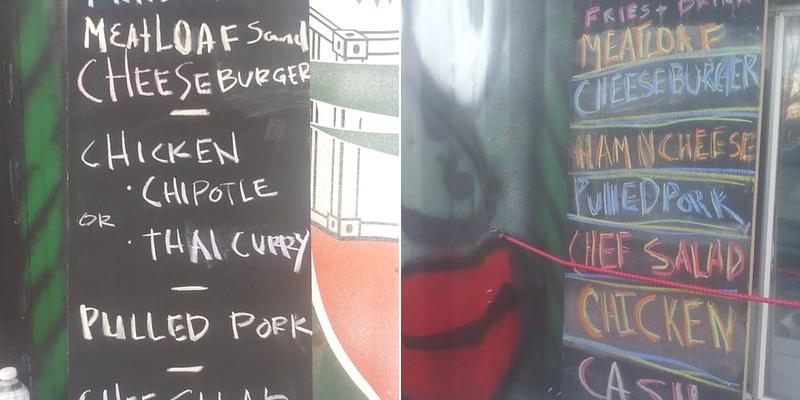 MEATLOAF Sand
CHEESEBURGER
CHICKEN
· CHIPOTLE
OR
· THAI CURRY
PULLED PORK
CHEF SALAD
FRIES + DRINK
MEATLOAF
CHEESEBURGER
HAM N CHEESE
PULLEDPORK
CHEF SALAD
CHICKEN
CASH